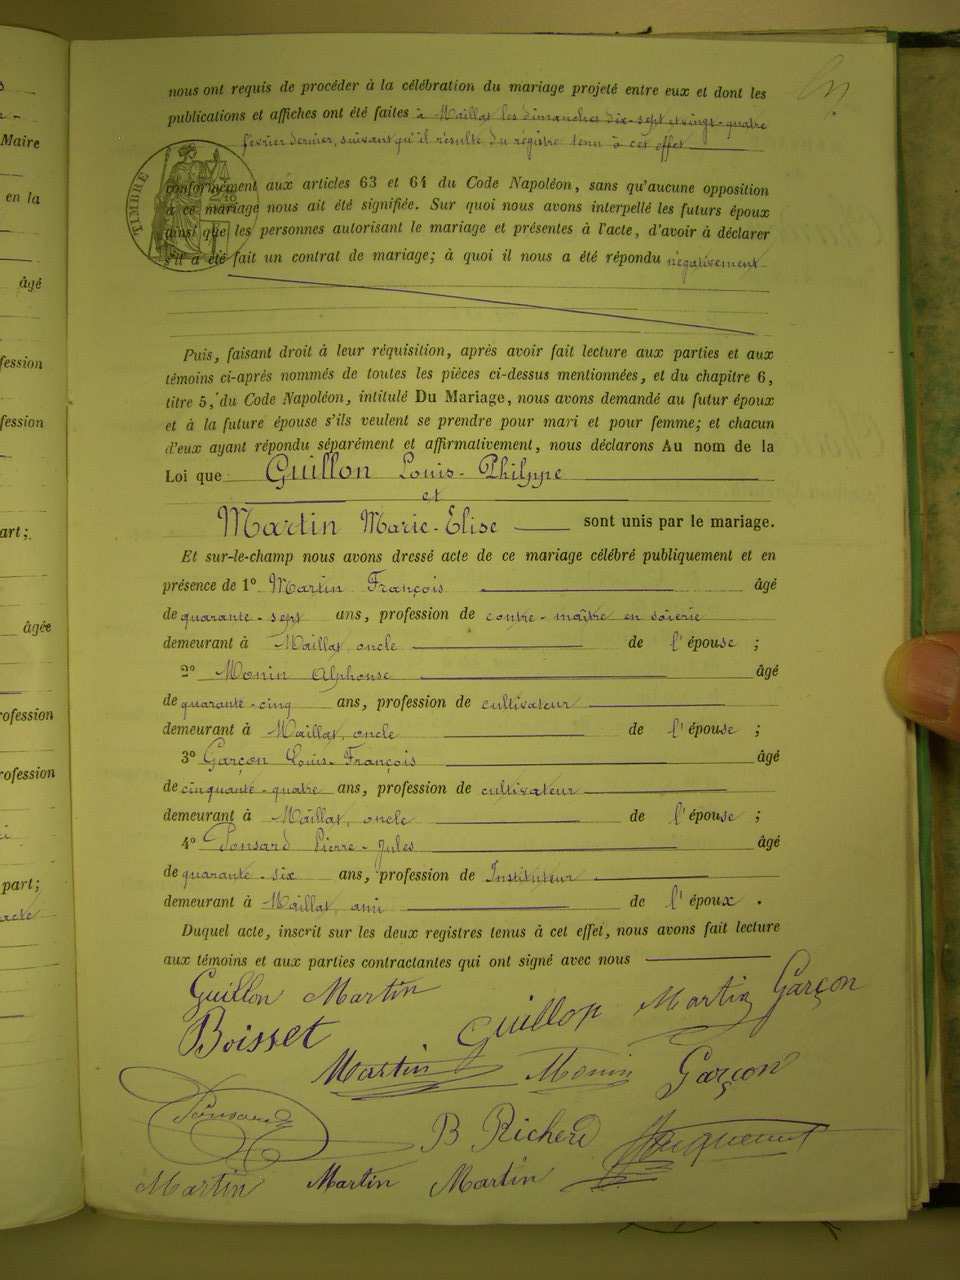 nous ont requis de procéder à la célébration du mariage projeté entre eux et dont les
publications et affiches ont été faites à Maillat les dimanches dix-sept et vingt-quatre
février dernier, suivant qu'il résulte du régistre tenu à cet effet
TIMBRE
conformément aux articles 63 et 64 du Code Napoléon, sans qu'aucune opposition
à ce mariage nous ait été signifiée. Sur quoi nous avons interpellé les futurs époux
ainsi que les personnes autorisant le mariage et présentes à l'acte, d'avoir à déclarer
s'il a été fait un contrat de mariage; à quoi il nous a été répondu négativement
Puis, faisant droit à leur réquisition, après avoir fait lecture aux parties et aux
témoins ci-après nommés de toutes les pièces ci-dessus mentionnées, et du chapitre 6,
titre 5, du Code Napoléon, intitulé Du Mariage, nous avons demandé au futur époux
et à la future épouse s'ils veulent se prendre pour mari et pour femme; et chacun
d'eux ayant répondu séparément et affirmativement, nous déclarons Au nom de la
Loi que Guillon Louis-Philippe
et
Martin Marie-Elise sont unis par le mariage.
Et sur-le-champ nous avons dressé acte de ce mariage célébré publiquement et en
présence de 1° Martin François âgé
de quarante-sept ans, profession de contre-maître en soierie
demeurant à Maillat, oncle de l'épouse ;
2° Monin Alphonse âgé
de quarante-cinq ans, profession de cultivateur
demeurant à Maillat, oncle de l'épouse ;
3° Garçon Louis-François âgé
de cinquante-quatre ans, profession de cultivateur
demeurant à Maillat, oncle de l'épouse ;
4° Ponsard Pierre-Jules âgé
de quarante-six ans, profession de Instituteur
demeurant à Maillat, ami de l'époux .
Duquel acte, inscrit sur les deux registres tenus à cet effet, nous avons fait lecture
aux témoins et aux parties contractantes qui ont signé avec nous
Guillon Martin
Guillon Martin Garçon
Boisset
Martin Monin Garçon
Ponsard
B Richerd
Martin Martin Martin
Maire
en la
âgé
fession
fession
art;
âgée
rofession
rofession
part;